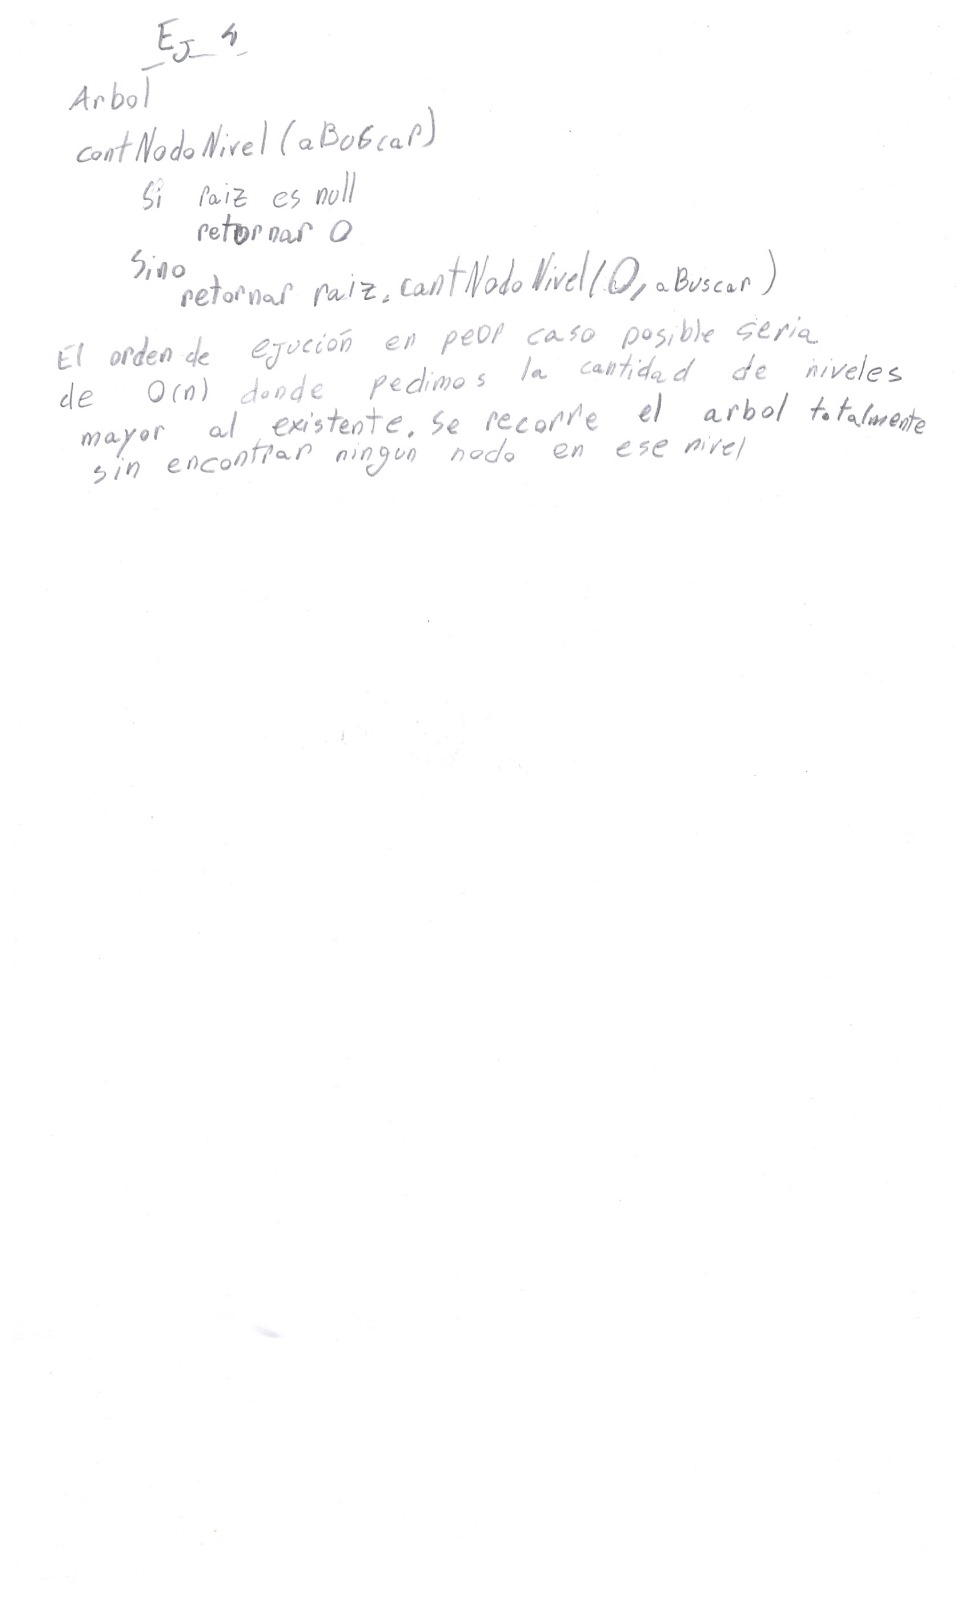 EJ 4
Arbol
contNodoNivel (aBuscar)
Si raiz es null
retornar 0
Sino
retornar raiz. cantNodoNivel(0, aBuscar)
El orden de ejución en peor caso posible seria
de O(n) donde pedimos la cantidad de niveles
mayor al existente. Se recorre el arbol totalmente
sin encontrar ningun nodo en ese nivel